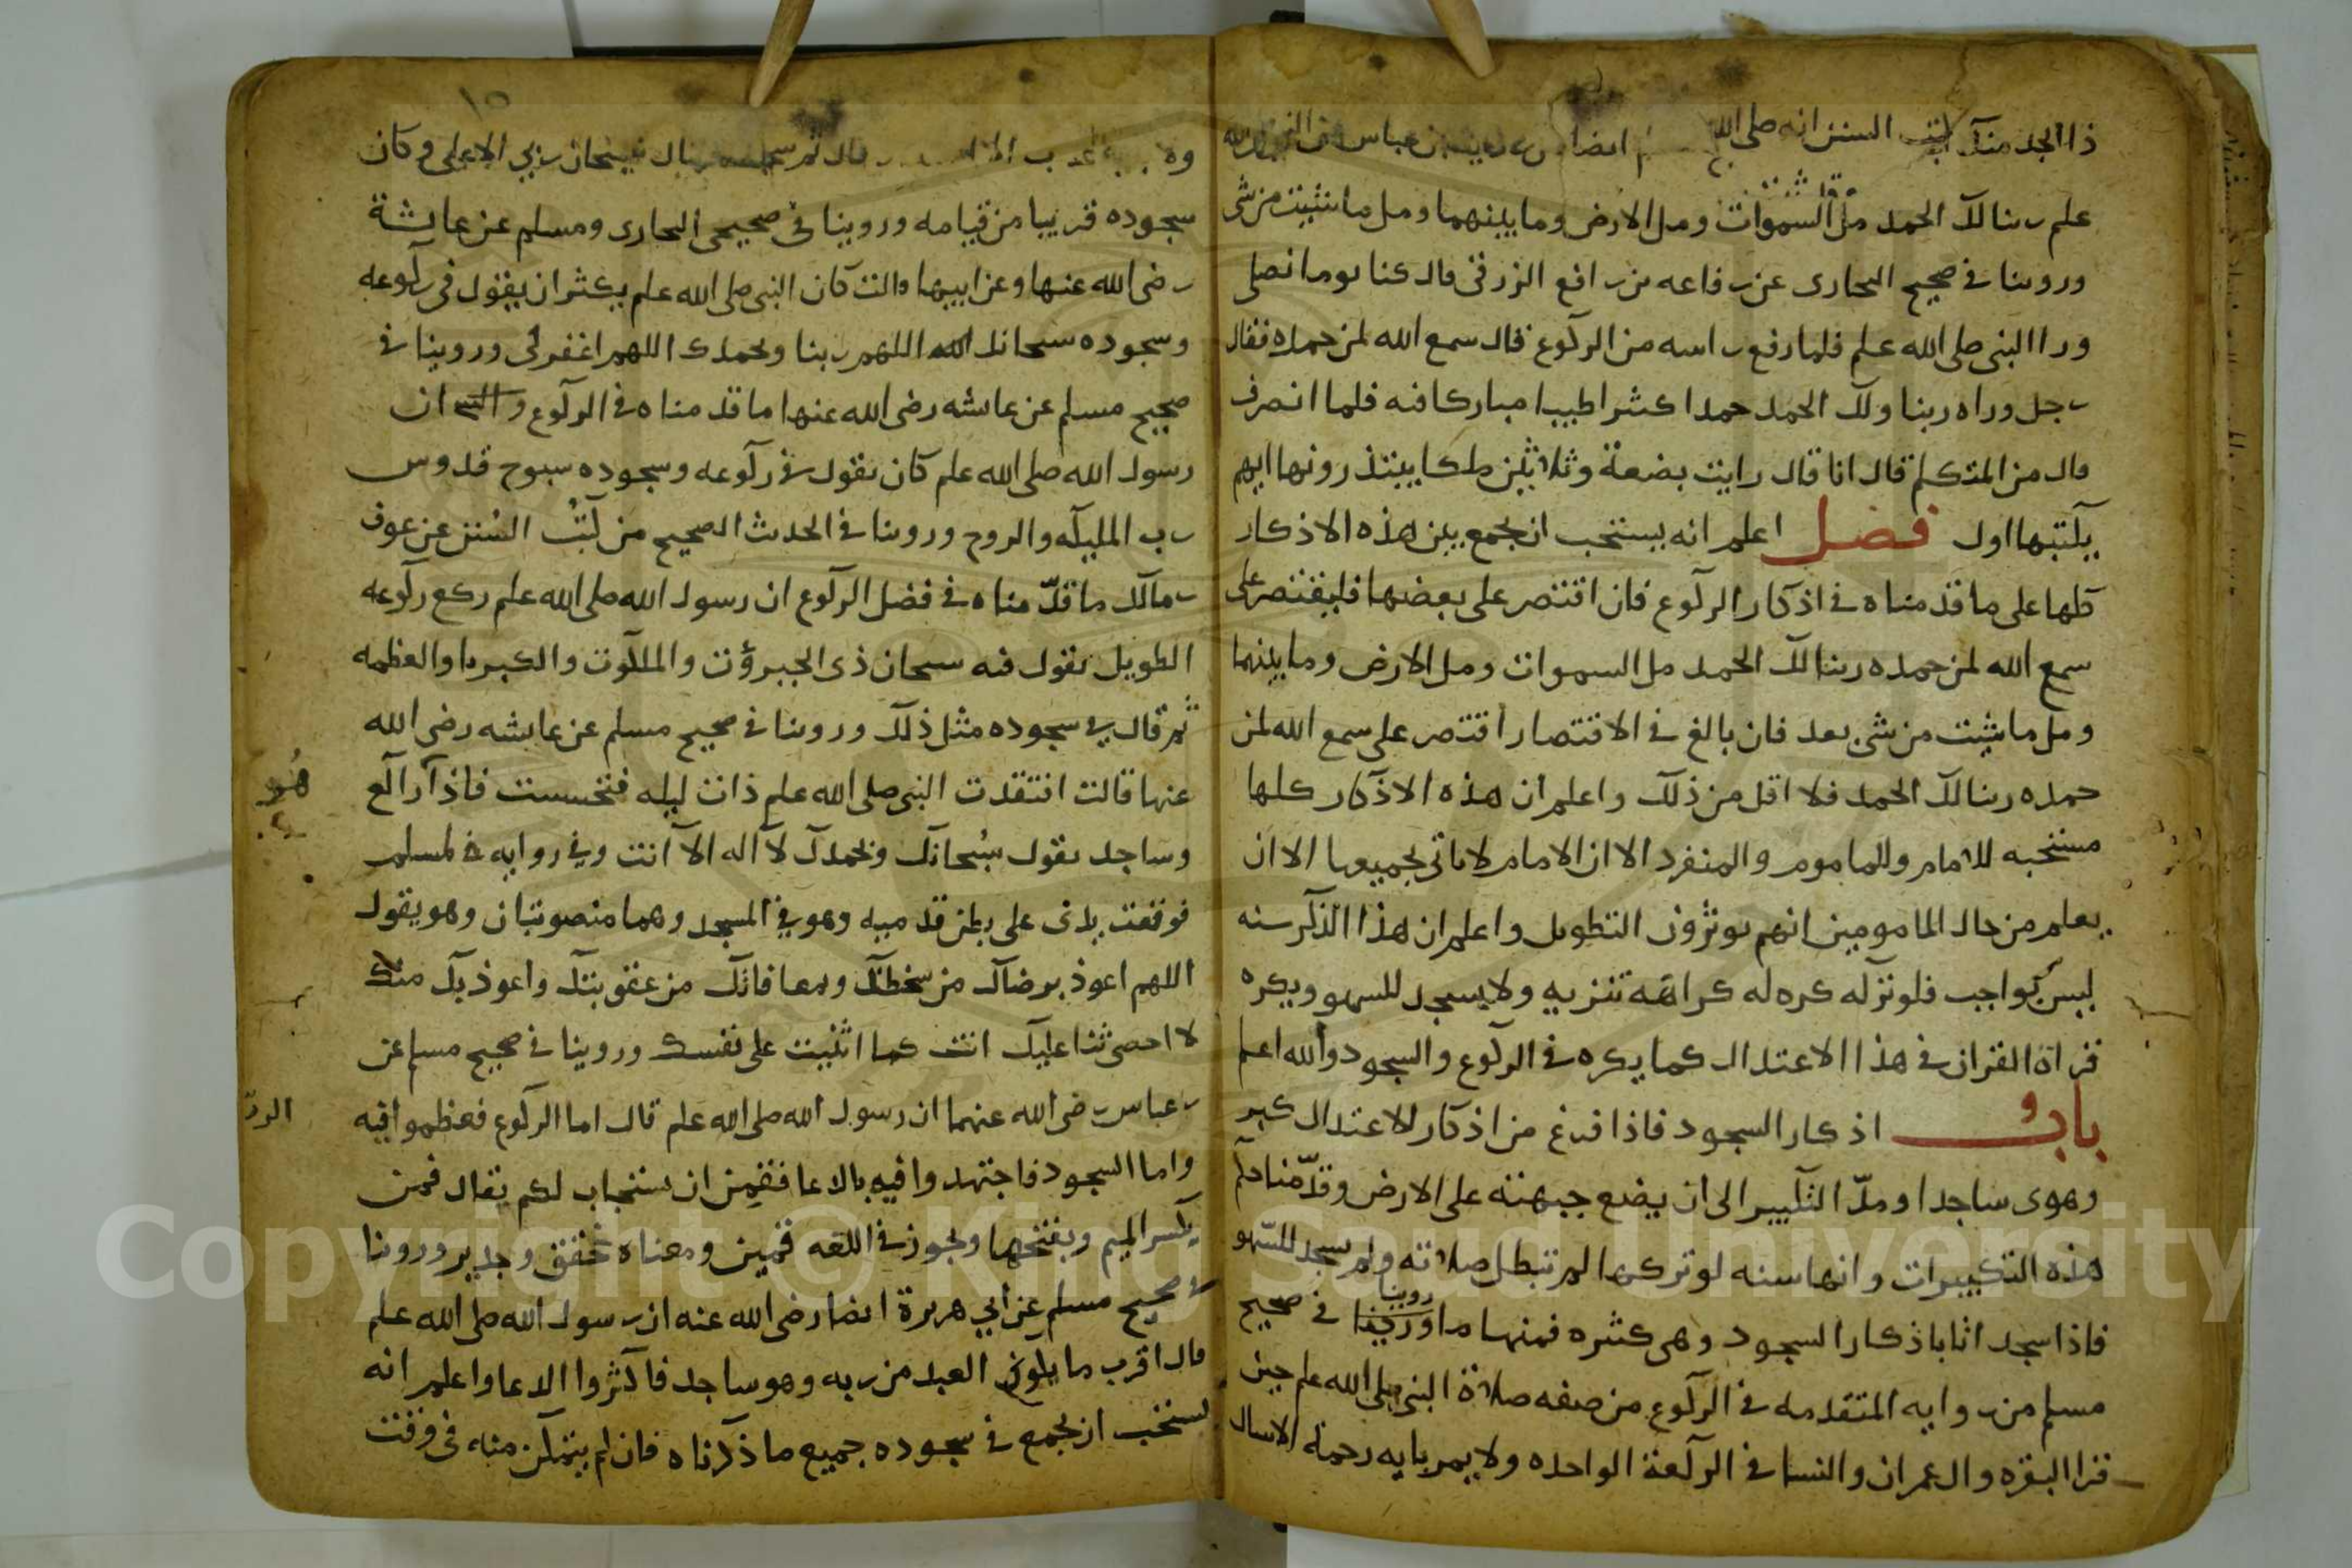 ذا الجد منك كتب السنن انه صلى الله ايضا عباس
علم ربنا لك الحمد مل السموات ومل الارض وما بينهما ومل ما شيت من شى
وروينا في صحيح البخارى عن رفاعه بن رافع الزرقى قال كنا يوما نصلى
ورا النبى صلى الله علم فلما رفع راسه من الركوع قال سمع الله لمن حمده فقال
رجل وراه ربنا ولك الحمد حمدا كثيرا طيبا مباركا فيه فلما انصرف
قال من المتكلم قال انا قال رايت بضعة وثلاثين ملكا يبتدرونها ايهم
يكتبها اول فصل اعلم انه يستحب ان يجمع بين هذه الاذكار
كلها على ما قدمناه في اذكار الركوع فان اقتصر على بعضها فليقتصر على
سمع الله لمن حمده ربنا لك الحمد مل السموات ومل الارض وما بينهما
ومل ما شيت من شى بعد فان بالغ في الاقتصار اقتصر على سمع الله لمن
حمده ربنا لك الحمد فلا اقل من ذلك واعلم ان هذه الاذكار كلها
مستحبه للامام وللماموم والمنفرد الا ان الامام لا ياتى بجميعها الا ان
يعلم من حال المامومين انهم يوثرون التطويل واعلم ان هذا الذكر سنه
ليس بواجب فلو تركه كره له كراهة تنزيه ولا يسجد للسهو ويكره
قراة القران في هذا الاعتدال كما يكره في الركوع والسجود والله اعلم
باب اذكار السجود فاذا فرغ من اذكار الاعتدال كبر
وهوى ساجدا ومدّ التكبير الى ان يضع جبهته على الارض وقدّمنا حكم
هذه التكبيرات وانها سنه لو تركها لم تبطل صلاته ولم يسجد للسّهو
فاذا سجد اتا باذكار السجود وهى كثيره فمنها ما روينا في صحيح
مسلم من روايه المتقدمه في الركوع من صفه صلاة النبى صلى الله علم حين
قرا البقره وال عمران والنسا في الركعة الواحده ولا يمر بايه رحمة الا سال
قال ثم سجد فقال سبحان ربي الاعلى وكان
سجوده قريبا من قيامه وروينا في صحيحى البخارى ومسلم عن عايشة
رضى الله عنها وعن ابيها قالت كان النبى صلى الله علم يكثر ان يقول في ركوعه
وسجوده سبحانك اللهم ربنا وبحمدك اللهم اغفر لى وروينا في
صحيح مسلم عن عايشه رضى الله عنها ما قدمناه في الركوع ان
رسول الله صلى الله علم كان يقول في ركوعه وسجوده سبوح قدوس
رب المليكه والروح وروينا في الحديث الصحيح من كتب السنن عن عوف
بن مالك ما قدّمناه في فضل الركوع ان رسول الله صلى الله علم ركع ركوعه
الطويل يقول فيه سبحان ذى الجبروت والملكوت والكبريا والعظمه
ثم قال في سجوده مثل ذلك وروينا في صحيح مسلم عن عايشه رضى الله
عنها قالت افتقدت النبى صلى الله علم ذات ليله فتحسست فاذا راكع
هو
وساجد يقول سبحانك وبحمدك لا اله الا انت وفي روايه في لمسلم
فوقعت يدى على بطن قدميه وهو في المسجد وهما منصوبتان وهو يقول
اللهم اعوذ برضاك من سخطك وبمعافاتك من عقوبتك واعوذ بك منك
لا احصى ثنا عليك انت كما اثنيت على نفسك وروينا في صحيح مسلم عن
بن عباس رضى الله عنهما ان رسول الله صلى الله علم قال اما الركوع فعظموا فيه
الربّ
واما السجود فاجتهدوا فيه بالدعا فقمن ان يستجاب لكم يقال قمن
بكسر الميم وبفتحها ويجوز في اللغه قمين ومعناه حقيق وجدير وروينا
في صحيح مسلم عن أبي هريرة ايضا رضى الله عنه ان رسول الله صلى الله علم
قال اقرب ما يكون العبد من ربه وهو ساجد فاكثروا الدعا واعلم انه
يستحب ان يجمع في سجوده جميع ما ذكرناه فان لم يتمكن منه في وقت
Copyright © King Saud University